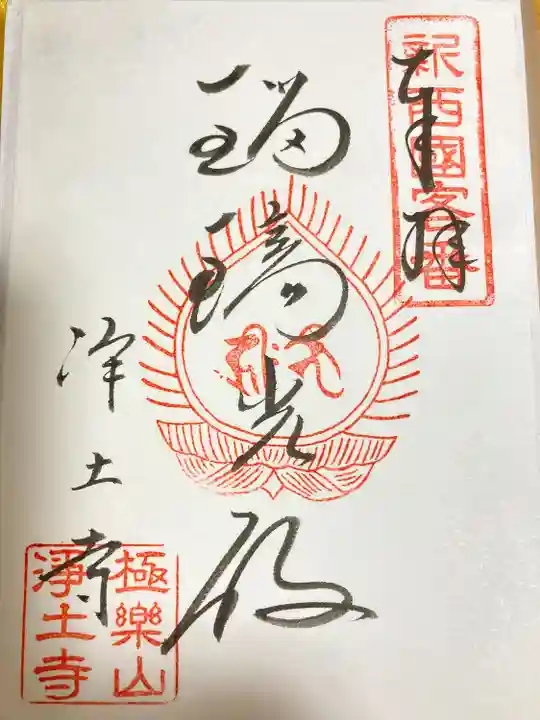 新西國客番
奉拝
瑠璃光殿
浄土寺
極樂山
淨土寺